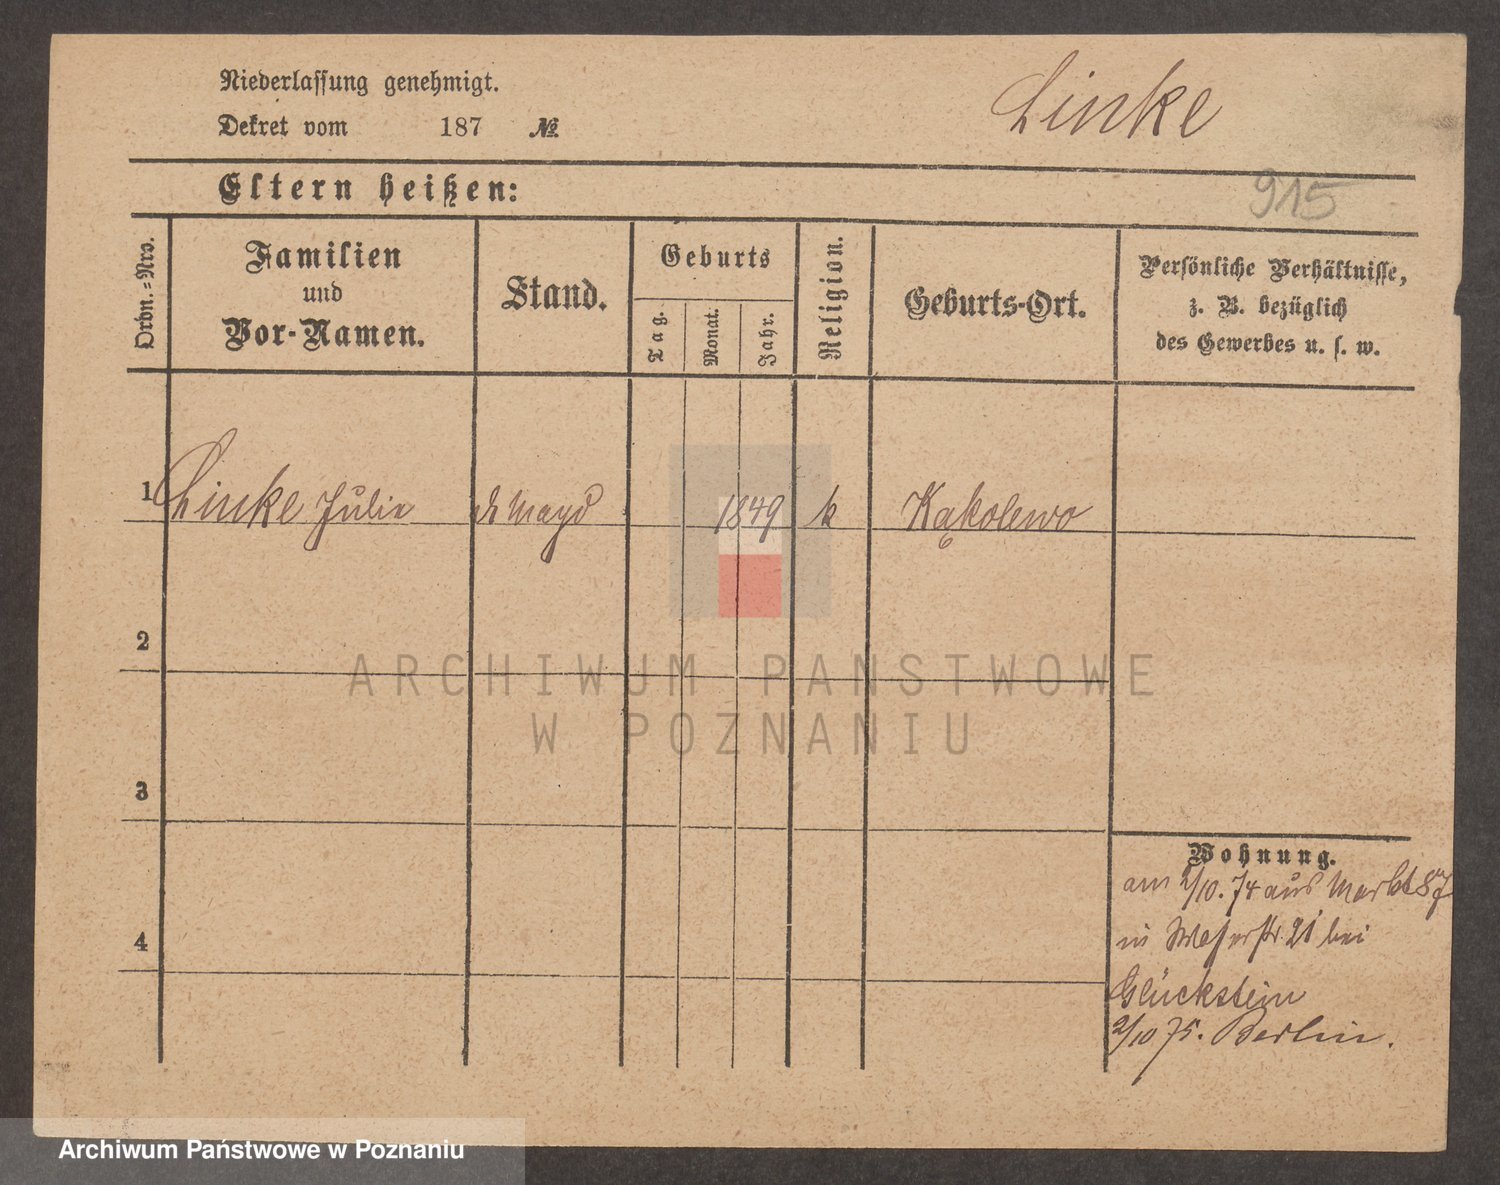 Niederlassung genehmigt.
Linke
Dekret vom 187 №
Eltern heißen:
915
Ordn.-Nro.
Familien
und
Vor-Namen.
Stand.
Geburts
Tag.
Monat.
Jahr.
Religion.
Geburts-Ort.
Persönliche Verhältnisse,
z. B. bezüglich
des Gewerbes u. s. w.
1 Linke Julie Magd 1849 k Kąkolewo
2
ARCHIWUM PAŃSTWOWE
W POZNANIU
3
Wohnung.
am 2/10. 74 aus Markt 87
in 21 bei
4
Glückstein
2/10 75. Berlin.
Archiwum Państwowe w Poznaniu